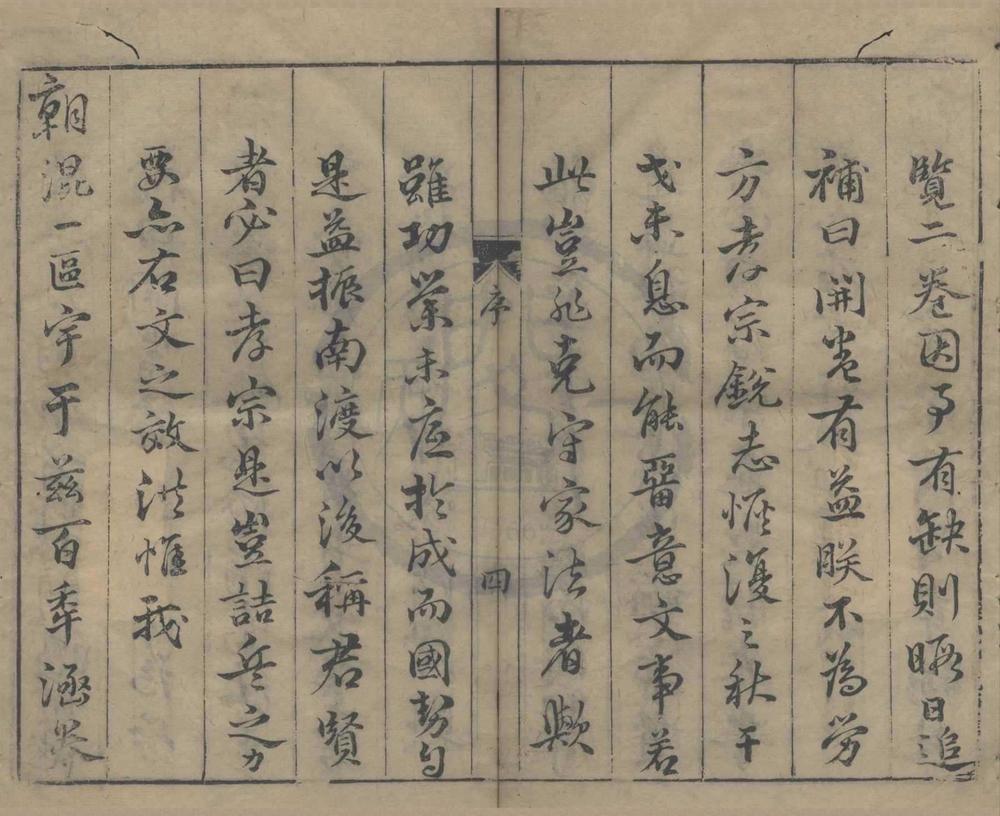 覽二卷因事有缺則暇日追
補曰開卷有益朕不為勞
方孝宗銳志恢復之秋干
戈未息而能留意文事若
此豈非克守家法者歟
序
四
雖功業未底於成而國勢自
是益振南渡以後稱君賢
者必曰孝宗是豈詰兵之力
要亦右文之效洪惟我
朝混一區宇于茲百年涵